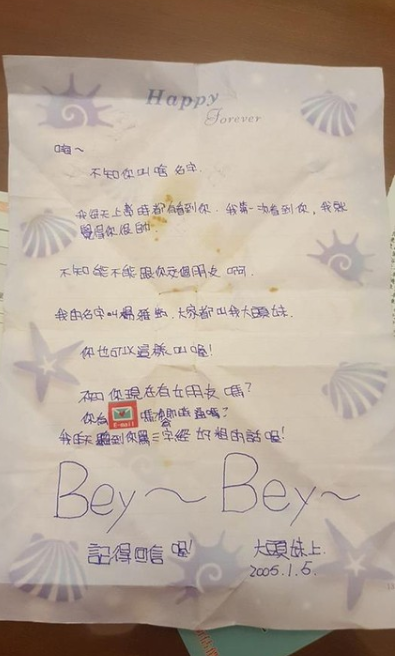 Happy
Forever
嗨~
不知你叫啥名字.
我每天上學時都有看到你. 我第一次看到你, 我就
覺得你很帥
不知能不能跟你交個朋友 啊.
我的名字叫楊雅 大家都叫我大頭妹.
你也可以這樣叫喔!
不知你現在有女朋友嗎?
你有 E-mail 嗎 嗎?
我每天聽到你罵三字經 好粗的話喔!
Bey~ Bey~
記得回信 喔!
大頭妹上
2005.1.5.